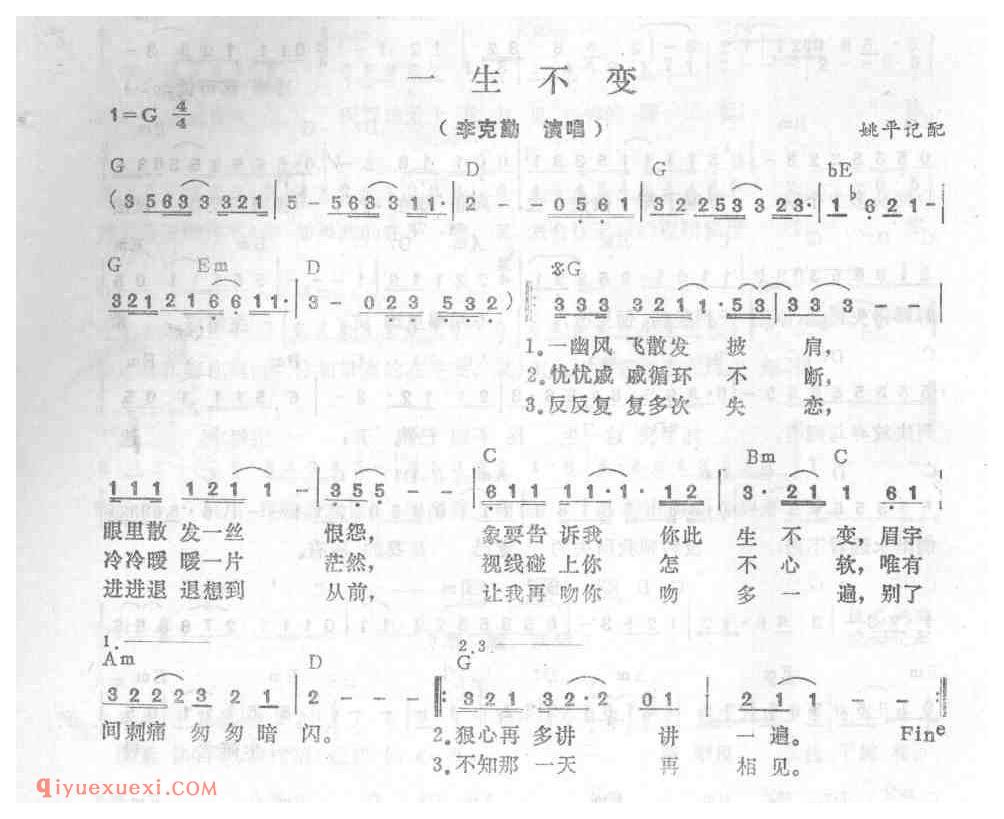 一生不变
1=G 4/4
（李克勤 演唱）
姚平记配
G D G bE
(3 5 6 3 3 3 3 2 1 | 5 - 5 6 3 3 3 1 1· | 2 - - 0 5 6 1 | 3 2 2 5 3 3 3 2 3· | 1 ♭6 2 1 - |
G Em D 𝄋G
3 2 1 2 1 6 6 1 1· | 3 - 0 2 3 5 3 2 ) 3 3 3 3 2 1 1·5 3 | 3 3 3 - - |
1.一幽风 飞散发 披 肩，
2.忧忧戚 戚循环 不 断，
3.反反复 复多次 失 恋，
C Bm C
1 1 1 1 2 1 1 - | 3 5 5 - - | 6 1 1 1 1·1· 1 2 | 3·2 1 1 6 1 |
眼里散 发一丝 恨怨， 象要告 诉我 你此 生 不 变，眉宇
冷冷暖 暖一片 茫然， 视线碰 上你 怎 不 心 软，唯有
进进退 退想到 从前， 让我再 吻你 吻 多 一 遍，别了
1. 2.3.
Am D G
3 2 2 2 3 2 1 | 2 - - - 3 2 1 3 2·2 0 1 | 2 1 1 - -
间刺痛 匆匆暗 闪。 2.狠心再 多讲 讲 一 遍。 Fine
3.不知那 一天 再 相 见。
qiyuexuexi.com